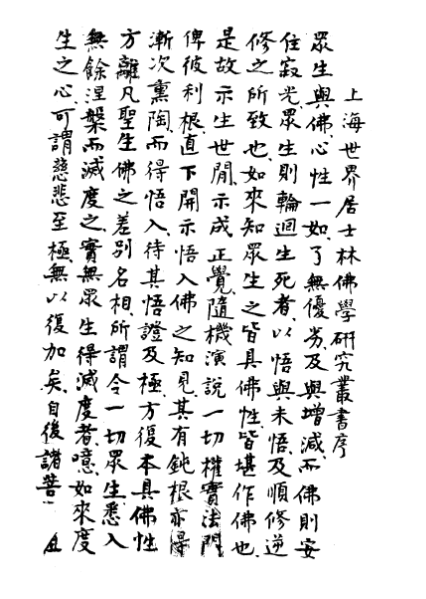 上海世界居士林佛學研究叢書序
眾生與佛、心性一如、了無優劣、及與增減、而佛則安
住寂光、眾生則輪迴生死者、以悟與未悟、及順修逆
修之所致也、如來知眾生之皆具佛性、皆堪作佛也、
是故示生世間、示成正覺、隨機演說一切權實法門、
俾彼利根、直下開示悟入佛之知見、其有鈍根、亦得
漸次熏陶、而得悟入、待其悟證及極、方復本具佛性、
方離凡聖生佛之差別名相、所謂令一切眾生、悉入
無餘涅槃而滅度之、實無眾生得滅度者、噫、如來度
生之心、可謂慈悲至極、無以復加矣、自後諸菩